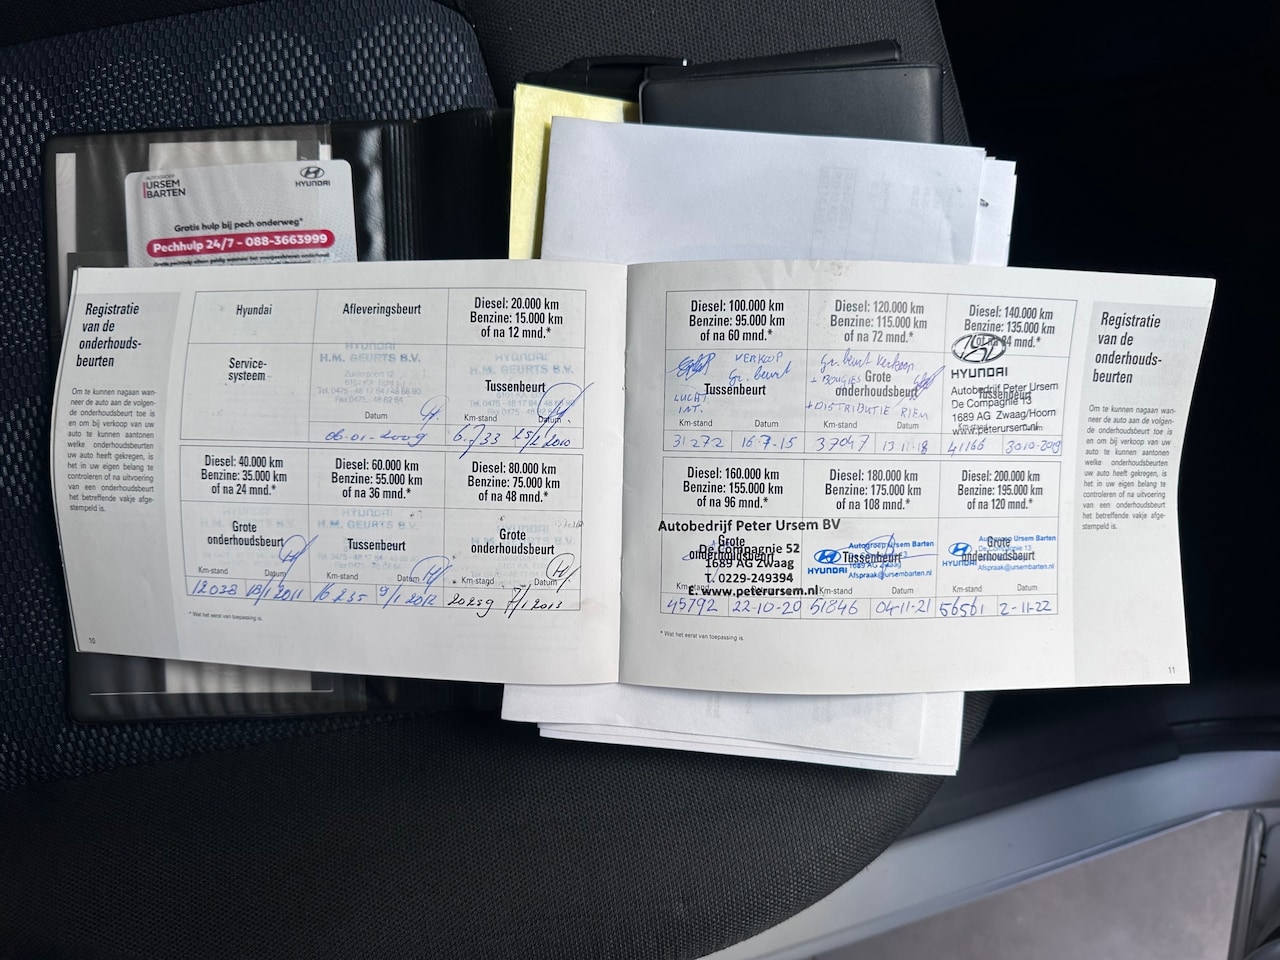 AUTOGROEP
URSEM
BARTEN
HYUNDAI
Gratis hulp bij pech onderweg*
Pechhulp 24/7 - 088-3663999
Registratie
van de
onderhouds-
beurten
Om te kunnen nagaan wan-
neer de auto aan de volgen-
de onderhoudsbeurt toe is
en om bij verkoop van uw
auto te kunnen aantonen
welke onderhoudsbeurten
uw auto heeft gekregen, is
het in uw eigen belang te
controleren of na uitvoering
van een onderhoudsbeurt
het betreffende vakje afge-
stempeld is.
10
Hyundai
Service-
systeem
Afleveringsbeurt
HYUNDAI
H.M. GEURTS B.V.
Datum
06-01-2009
Diesel: 20.000 km
Benzine: 15.000 km
of na 12 mnd.*
HYUNDAI
H.M. GEURTS B.V.
Tussenbeurt
Km-stand Datum
6.733 25/1 2010
Diesel: 40.000 km
Benzine: 35.000 km
of na 24 mnd.*
Grote
onderhoudsbeurt
Km-stand Datum
12028
Diesel: 60.000 km
Benzine: 55.000 km
of na 36 mnd.*
H.M. GEURTS B.V.
Tussenbeurt
Km-stand Datum
16235 9/1 2012
Diesel: 80.000 km
Benzine: 75.000 km
of na 48 mnd.*
Grote
onderhoudsbeurt
Km-stand Datum
20259 7/1 2013
* Wat het eerst van toepassing is.
Diesel: 100.000 km
Benzine: 95.000 km
of na 60 mnd.*
VERKOOP
Gr. beurt
Tussenbeurt
LUCHT
INT.
Km-stand Datum
31272 16-7-15
Diesel: 120.000 km
Benzine: 115.000 km
of na 72 mnd.*
Gr. beurt Verkoop
+ BOUGIES
Grote
onderhoudsbeurt
+ DISTRIBUTIE RIEM
Km-stand Datum
37047 13-11-18
Diesel: 140.000 km
Benzine: 135.000 km
of na 84 mnd.*
HYUNDAI
Autobedrijf Peter Ursem
Tussenbeurt
De Compagnie 13
1689 AG Zwaag/Hoorn
www.peterursem.nl
41166 3010-2019
Diesel: 160.000 km
Benzine: 155.000 km
of na 96 mnd.*
Autobedrijf Peter Ursem BV
Grote
onderhoudsbeurt
De Compagnie 52
1689 AG Zwaag
T. 0229-249394
E. www.peterursem.nl
Km-stand Datum
45792 22-10-20
Diesel: 180.000 km
Benzine: 175.000 km
of na 108 mnd.*
Autogroep Ursem Barten
Tussenbeurt
1689 AG Zwaag
Afspraak@ursembarten.nl
HYUNDAI
Km-stand Datum
51846 04-11-21
Diesel: 200.000 km
Benzine: 195.000 km
of na 120 mnd.*
Grote
onderhoudsbeurt
Autogroep Ursem Barten
De Compagnie 13
Afspraak@ursembarten.nl
HYUNDAI
Km-stand Datum
56561 2-11-22
* Wat het eerst van toepassing is.
Registratie
van de
onderhouds-
beurten
Om te kunnen nagaan wan-
neer de auto aan de volgen-
de onderhoudsbeurt toe is
en om bij verkoop van uw
auto te kunnen aantonen
welke onderhoudsbeurten
uw auto heeft gekregen, is
het in uw eigen belang te
controleren of na uitvoering
van een onderhoudsbeurt
het betreffende vakje afge-
stempeld is.
11